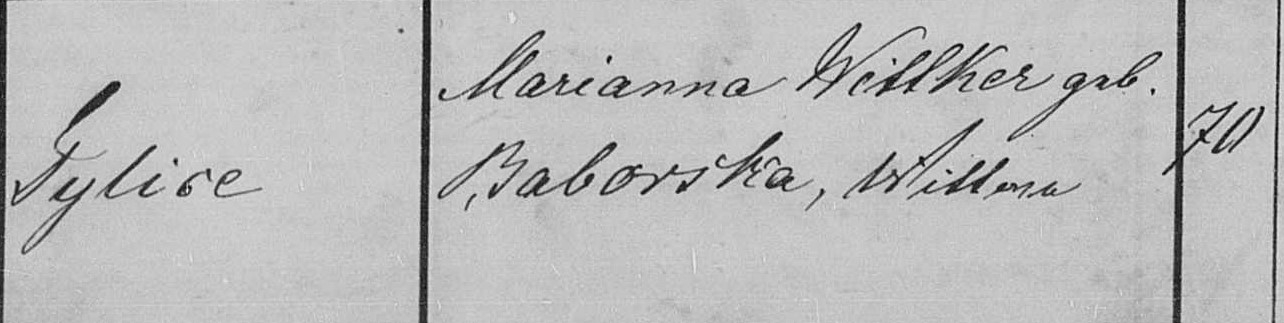 Tylice
Marianna Wittker geb.
Baborska, Wittwe
70